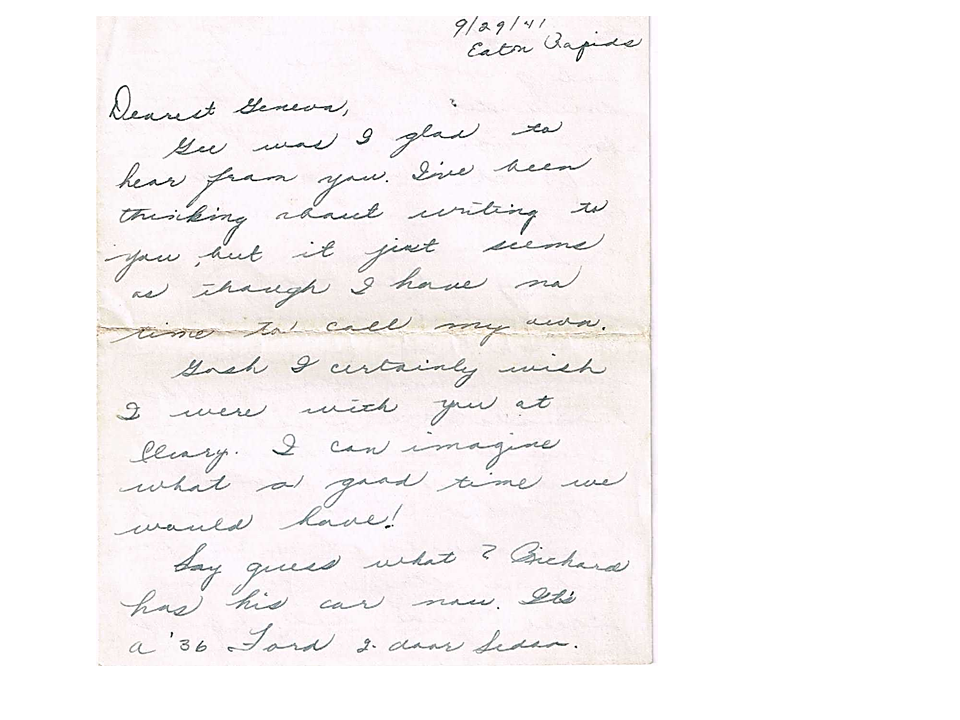 9/29/41
Eaton Rapids
Dearest Geneva,
Gee was I glad to
hear from you. I've been
thinking about writing to
you, but it just seems
as though I have no
time to call my own.
Gosh I certainly wish
I were with you at
Cleary. I can imagine
what a good time we
would have!
Say guess what? Richard
has his car now. It's
a '36 Ford 2-door Sedan.